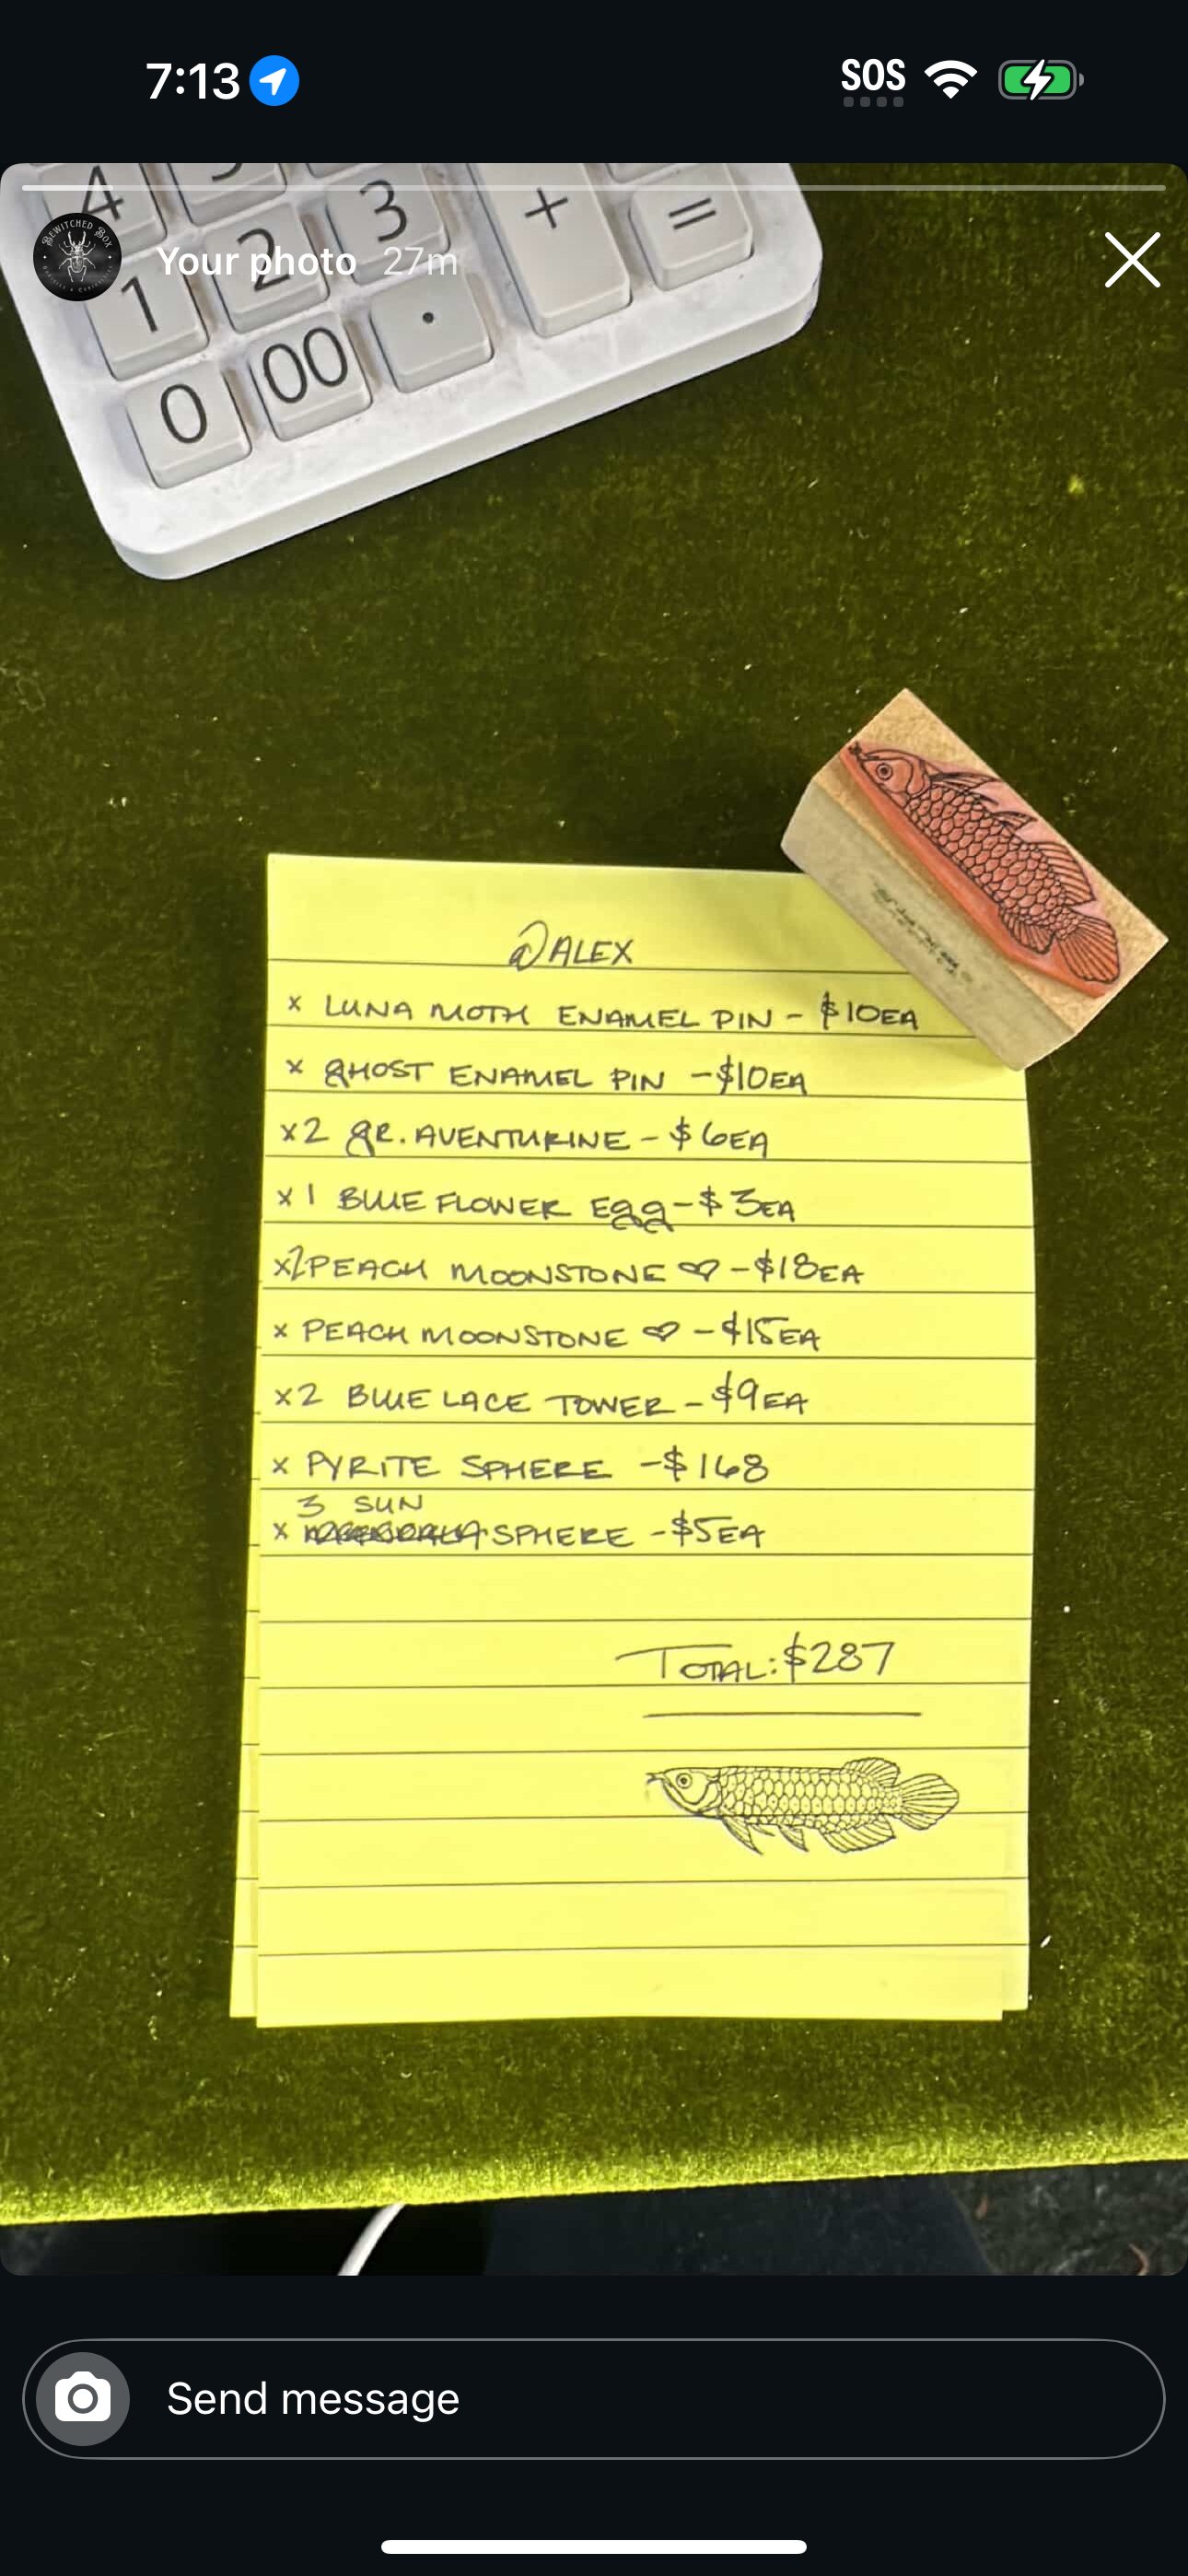 7:13
SOS
4 3 + =
Your photo 27m
BEWITCHED BOX
1 2
0 00 .
@ALEX
x LUNA MOTH ENAMEL PIN - $10EA
x GHOST ENAMEL PIN - $10EA
x2 GR. AVENTURINE - $6EA
x1 BLUE FLOWER EGG - $3EA
x2 PEACH MOONSTONE ♡ - $18EA
x PEACH MOONSTONE ♡ - $15EA
x2 BLUE LACE TOWER - $9EA
x PYRITE SPHERE - $168
3 SUN
x SPHERE - $5EA
TOTAL: $287
Send message